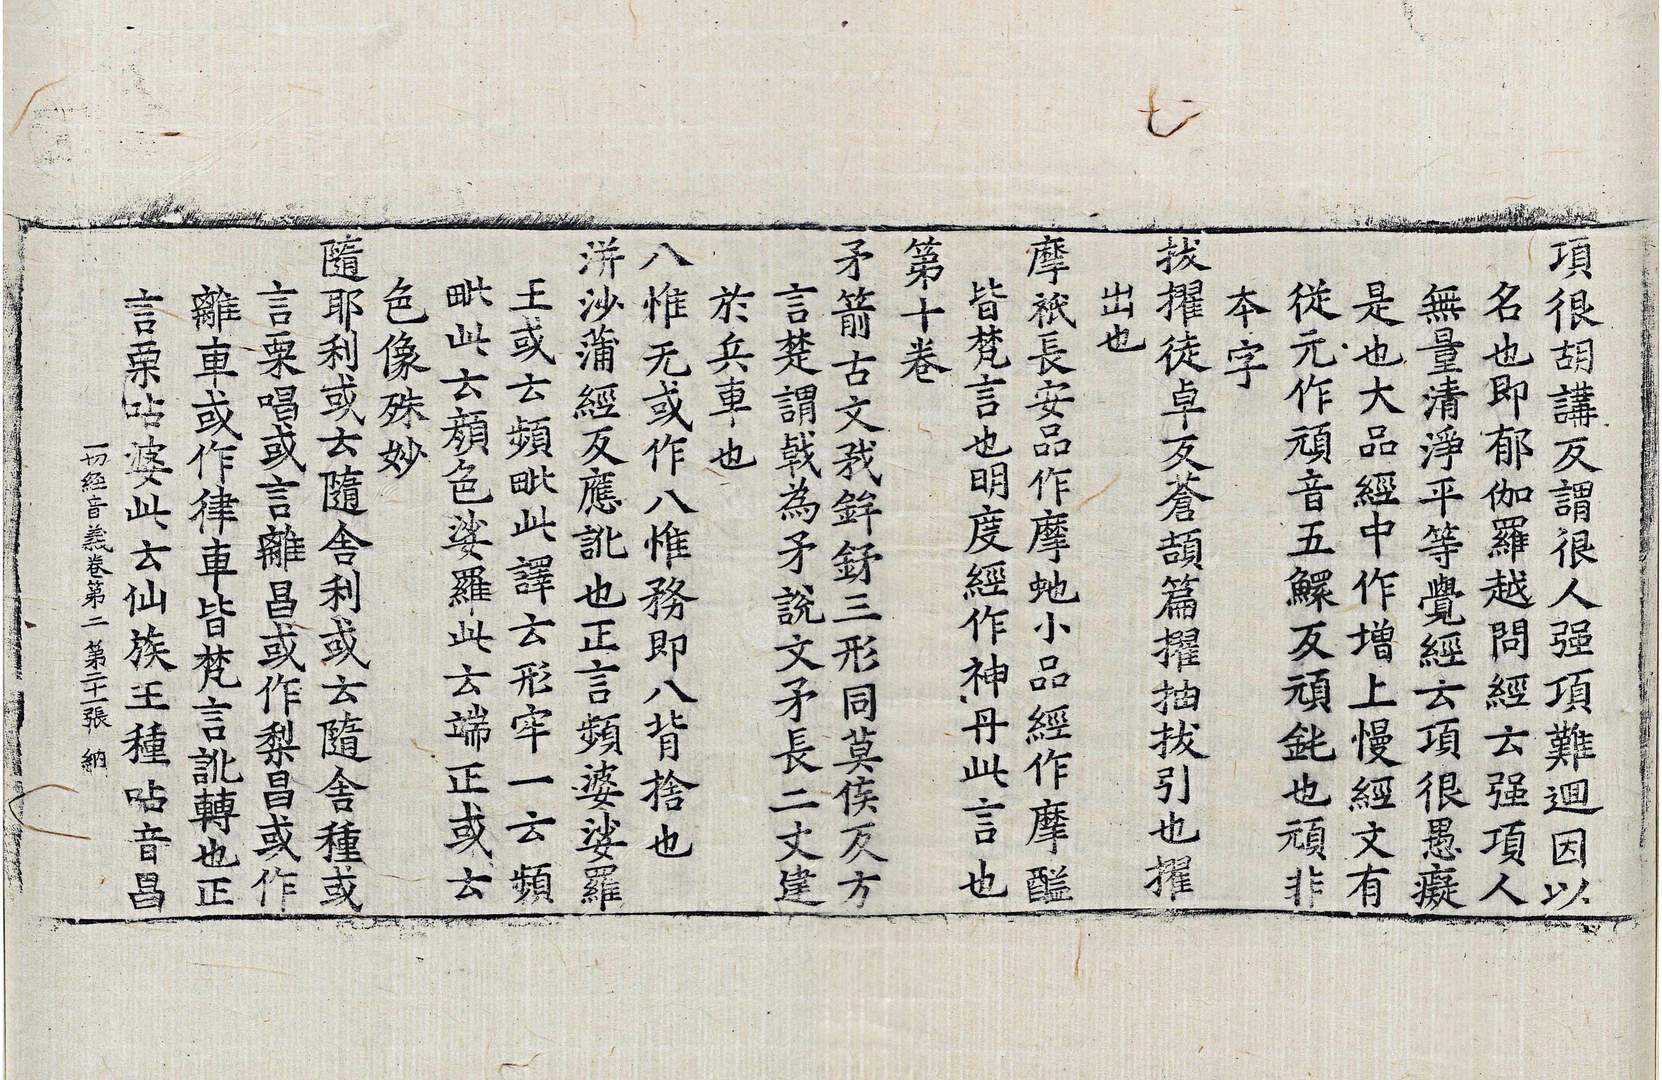 項很胡講反謂很人强項難迴因以
名也即郁伽羅越問經云强項人
無量清淨平等覺經云項很愚癡
是也大品經中作增上慢經文有
從元作頑音五鰥反頑鈍也頑非
本字
拔擢徒卓反蒼頡篇擢抽拔引也擢
出也
摩祇長安品作摩虵小品經作摩醯
皆梵言也明度經作神丹此言也
第十卷
矛箭古文𢦧鉾䤹三形同莫侯反方
言楚謂戟為矛說文矛長二丈建
於兵車也
八惟无或作八惟務即八背捨也
洴沙蒲經反應訛也正言頻婆娑羅
王或云頻毗此譯云形牢一云頻
毗此云顏色娑羅此云端正或云
色像殊妙
隨耶利或云隨舍利或云隨舍種或
言栗唱或言離昌或作梨昌或作
離車或作律車皆梵言訛轉也正
言栗呫婆此云仙族王種呫音昌
一切經音義卷第二 第二十一張 納